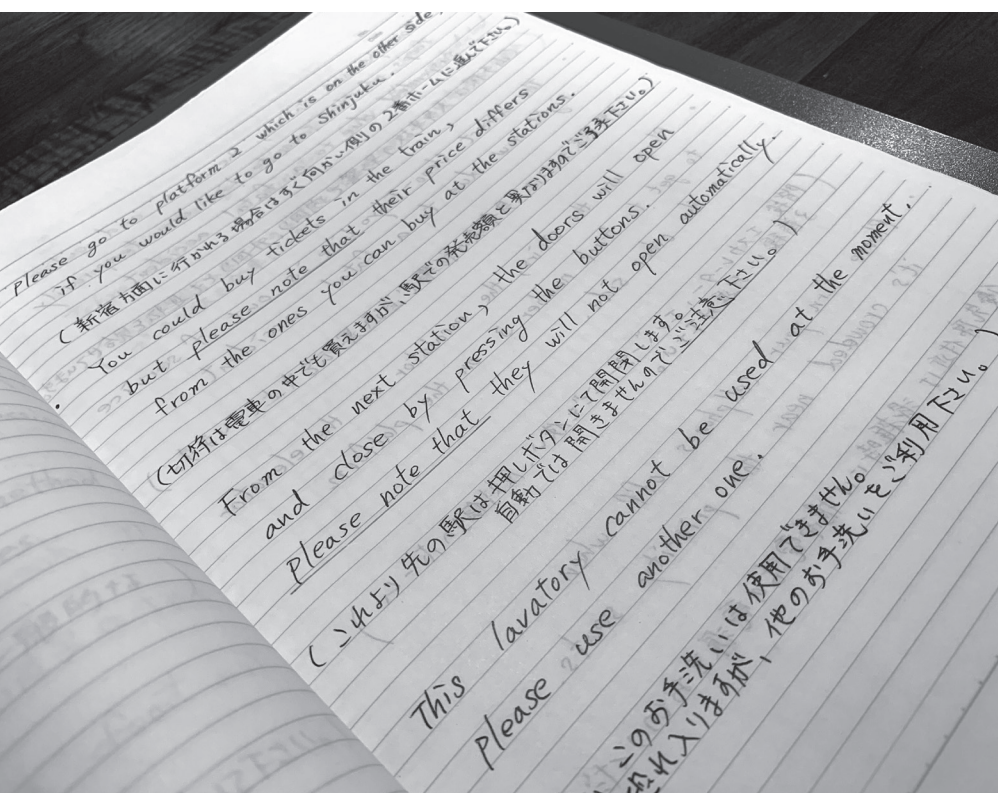 please go to platform 2 which is on the other side,
if you would like to go to Shinjuku.
(新宿方面に行かれる場合はすぐ向かい側の2番ホームに進んで下さい。)
You could buy tickets in the train,
but please note that their price differs
from the ones you can buy at the stations.
(切符は電車の中でも買えますが、駅での発売額と異なりますのでご了承下さい。)
From the next station, the doors will open
and close by pressing the buttons.
please note that they will not open automatically.
(これより先の駅は押しボタンにて開閉します。
自動では開きませんのでご注意下さい。)
This lavatory cannot be used at the moment.
please use another one.
このお手洗いは使用できません。
恐れ入りますが、他のお手洗いをご利用下さい。)